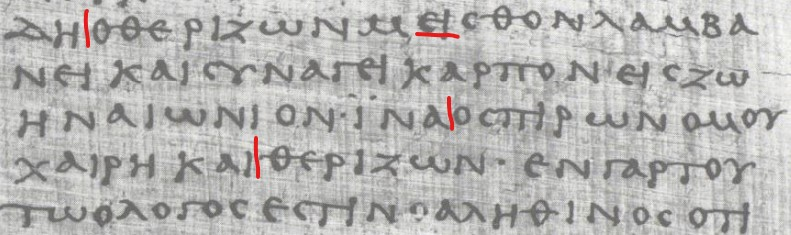 ΔΗΟΘΕΡΙΖΩΝΜΕΙΣΘΟΝΛΑΜΒΑ
ΝΕΙΚΑΙΣΥΝΑΓΕΙΚΑΡΠΟΝΕΙΣΖΩ
ΗΝΑΙΩΝΙΟΝ·ΙΝΑΟΣΠΙΡΩΝΟΜΟΥ
ΧΑΙΡΗΚΑΙΘΕΡΙΖΩΝ·ΕΝΓΑΡΤΟΥ
ΤΩΟΛΟΓΟΣΕΣΤΙΝΟΑΛΗΘΙΝΟΣΟΤΙ